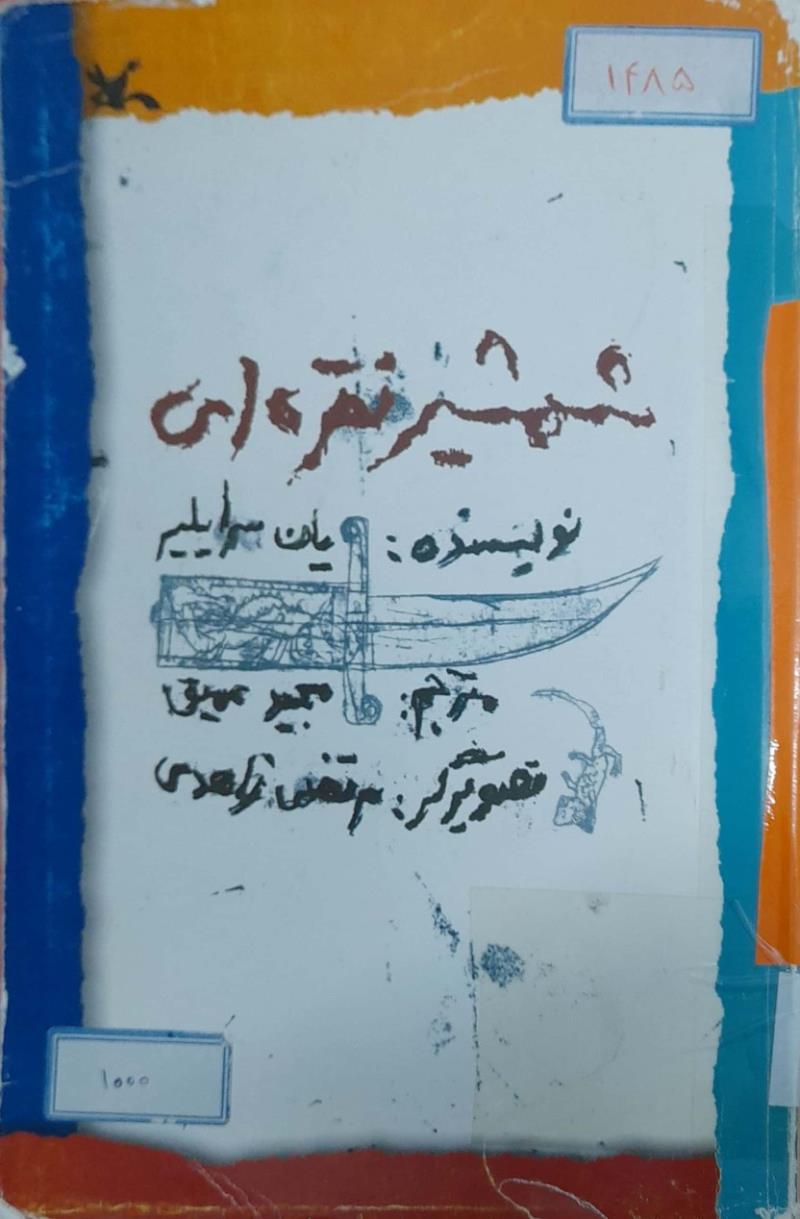 ۱۴۸۵
شمشیر نقره‌ای
نویسنده: یان سرایلیر
مترجم: مجید عمیق
تصویرگر: مرتضی زاهدی
۱۰۰۰